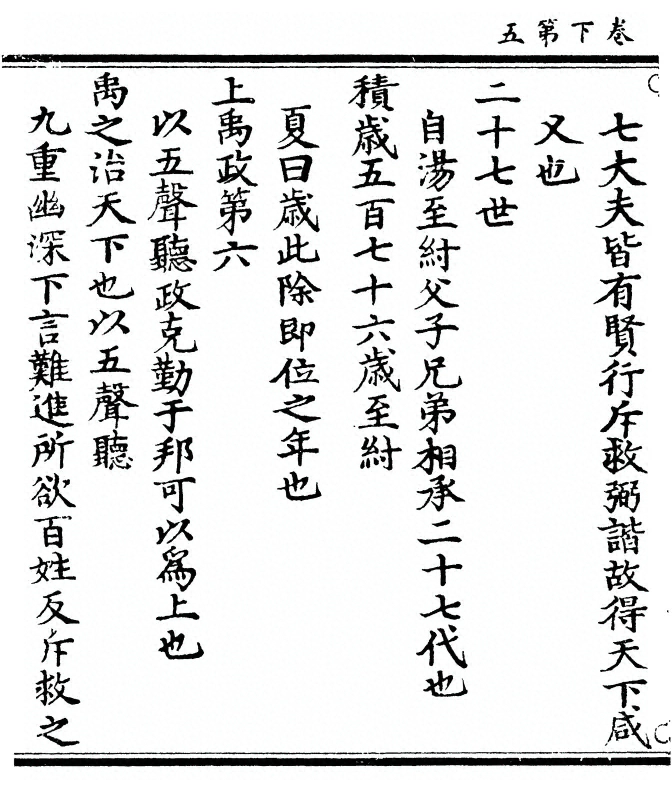 卷下第五
七大夫皆有賢行斥救弼諧故得天下咸
又也
二十七世
自湯至紂父子兄弟相承二十七代也
積歲五百七十六歲至紂
夏曰歲此除即位之年也
上禹政第六
以五聲聽政克勤于邦可以為上也
禹之治天下也以五聲聽
九重幽深下言難進所欲百姓反斥救之